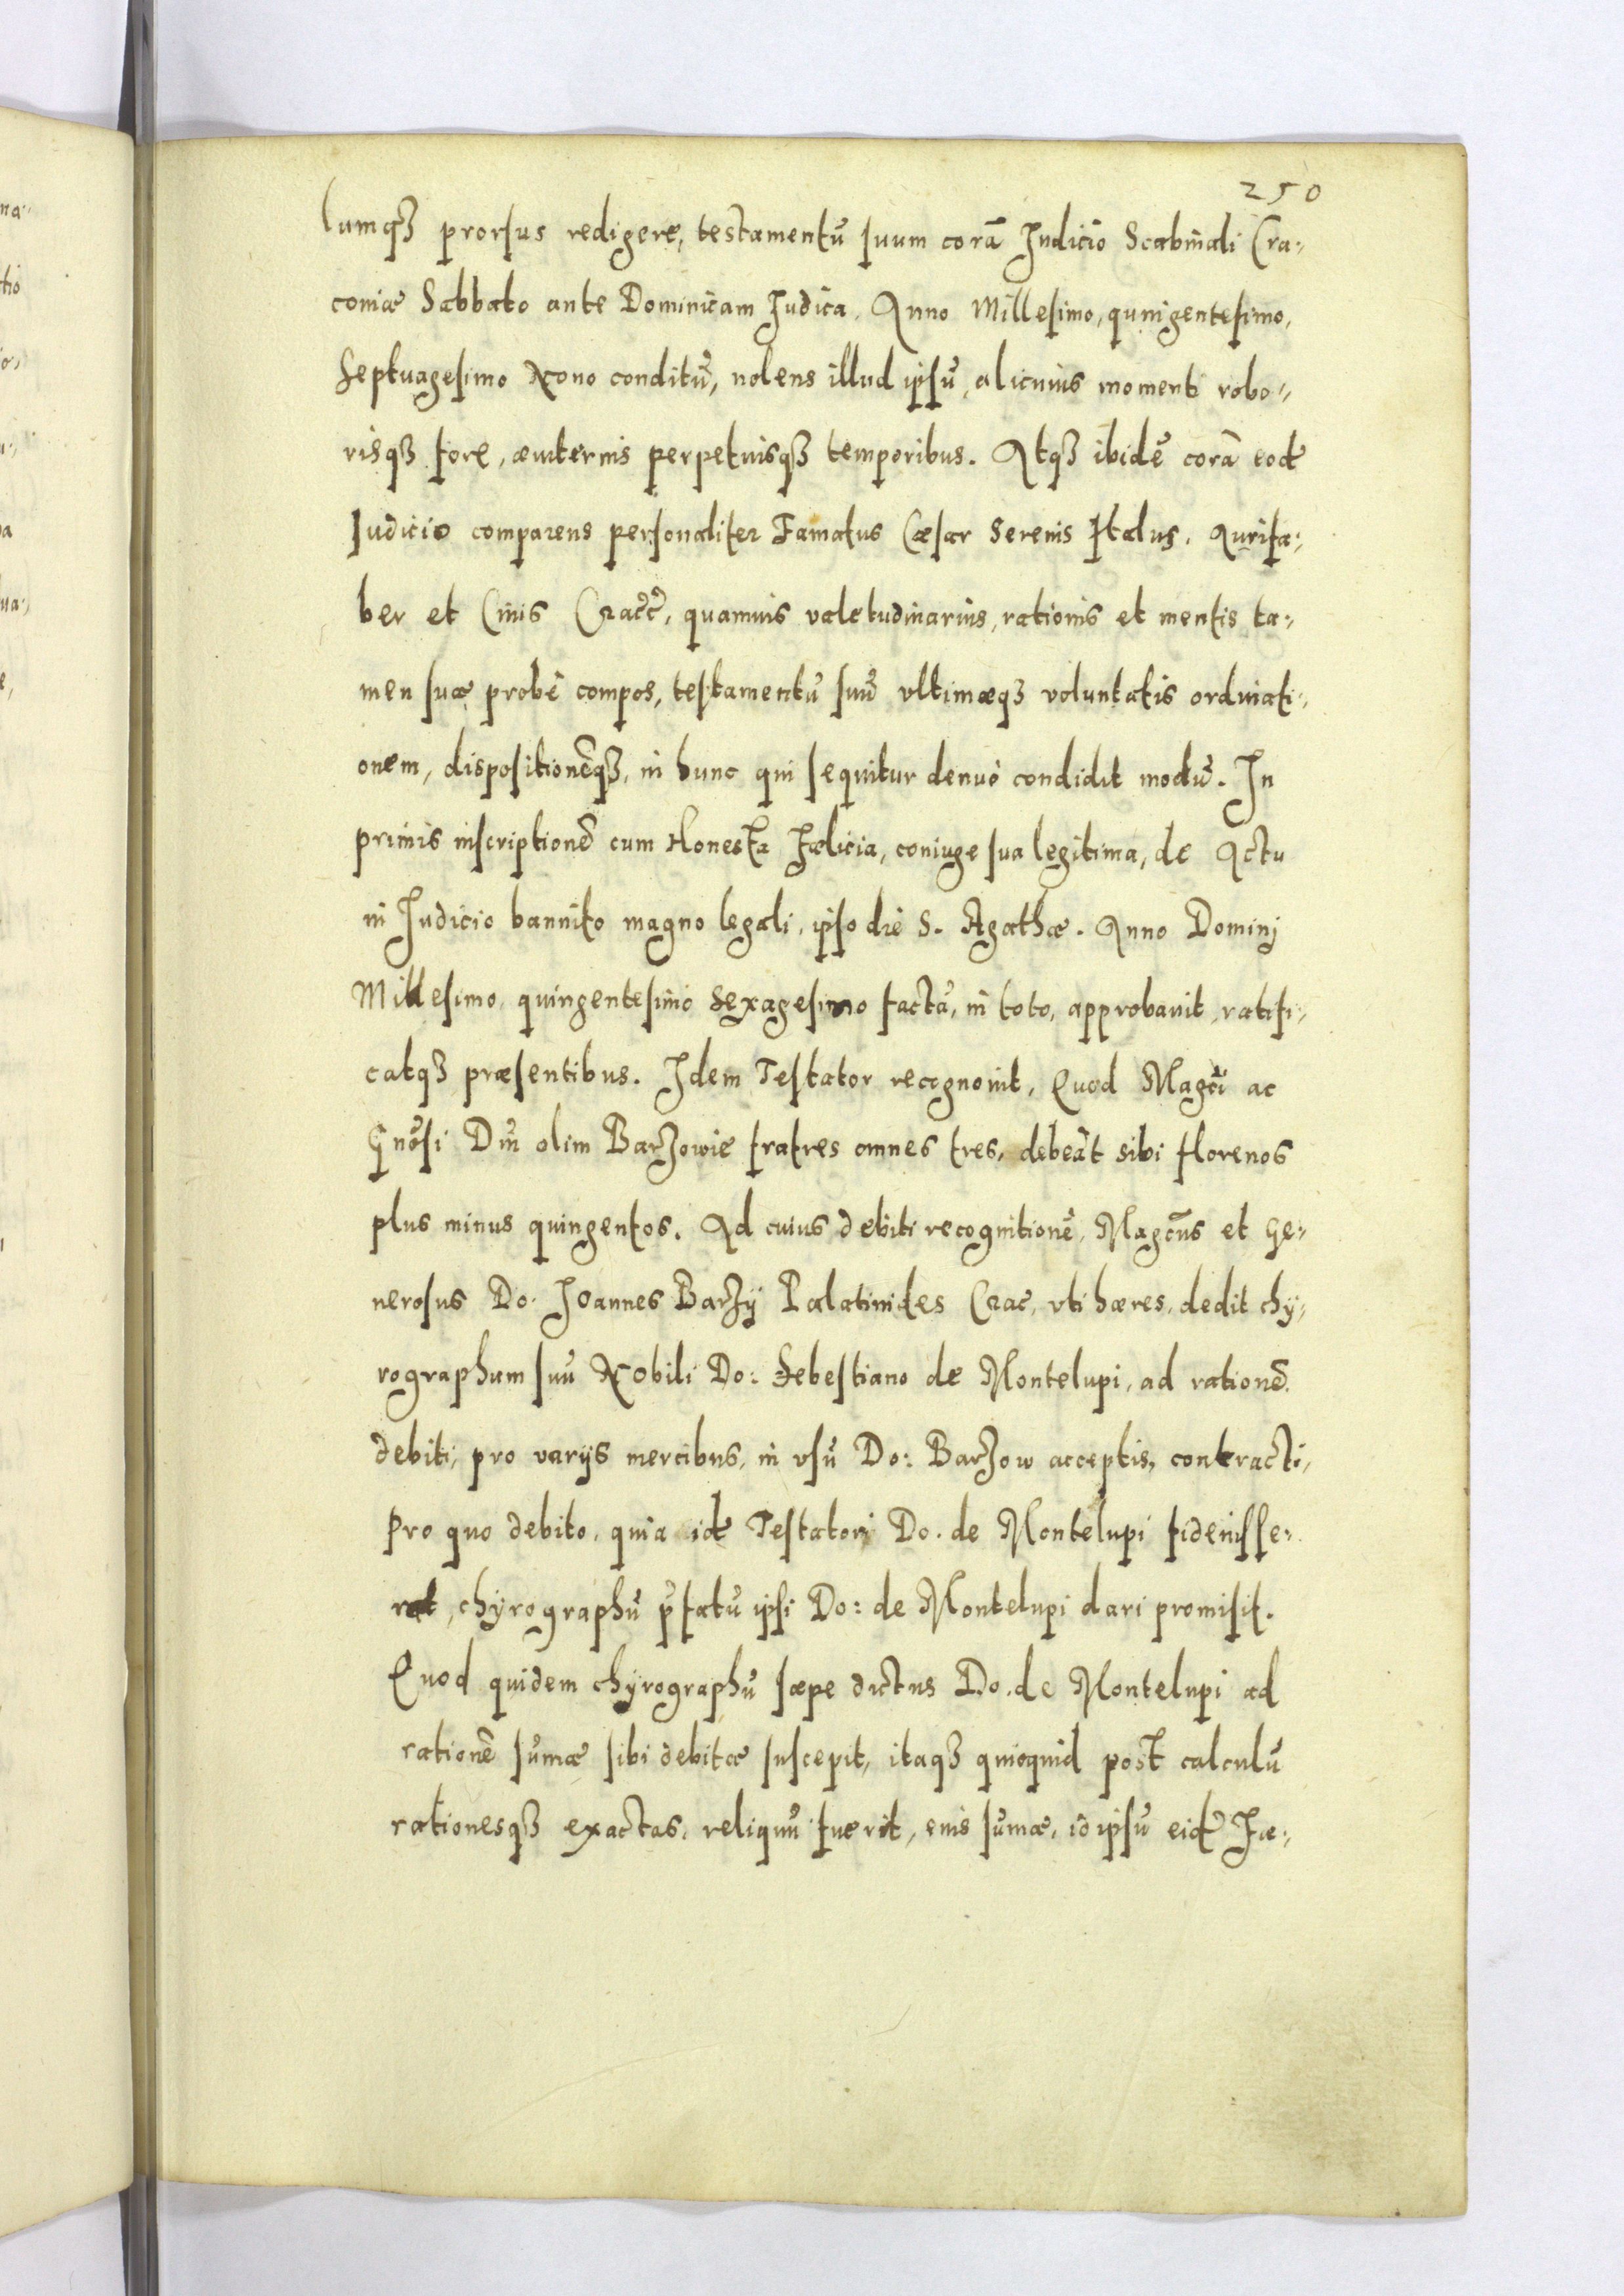 250
lumqꝫ prorsus redigere, testamentũ suum corã Iudicio Scabinali Cra-
couiæ Sabbato ante Dominicam Iudica. Anno Millesimo, quingentesimo,
Septuagesimo Nono conditũ, nolens illud ipsũ, alicuius momenti robo-
risqꝫ fore, æuiternis perpetuisqꝫ temporibus. Atqꝫ ibidẽ corã eod
Iudicio comparens personaliter Famatus Cæsar Serenis Italus, Aurifa-
ber et Ciuis Cracẽ, quamuis valetudinarius, rationis et mentis ta-
men suæ probè compos, testamentũ suũ vltimæqꝫ voluntatis ordinati-
onem, dispositionẽqꝫ, in hunc qui sequitur denuò condidit modũ. In
primis inscriptionẽ cum Honesta Fœlicia, coniuge sua legitima, de Actu
in Iudicio bannito magno legali, ipso die S. Agathæ. Anno Dominj
Millesimo, quingentesimo Sexagesimo factã, in toto, approbauit, ratifi-
catqꝫ præsentibus. Idem Testator recognouit, Quod Magci ac
Gnõsi Dñi olim Barzowie fratres omnes tres, debeãt sibi florenos
plus minus quingentos. Ad cuius debiti recognitionẽ, Magcus et Ge-
nerosus Do: Ioannes Barzÿ Palatinides Crac, vti hæres, dedit chÿ-
rographum suũ Nobili Do: Sebestiano de Montelupi, ad rationẽ
debiti, pro varijs mercibus, in vsũ Do: Barzow acceptis, contracti,
Pro quo debito, quia id Testatori Do. de Montelupi fideiusse-
rat, chÿrographũ p̃fatũ ipsi Do: de Montelupi dari promisit.
Quod quidem chÿrographũ sæpe dictus Do. de Montelupi ad
rationẽ sum̃æ sibi debitæ suscepit, itaqꝫ quicquid post calculũ
rationesqꝫ exactas, reliquũ fuerit, eius sum̃æ, id ipsũ eid Fœ-